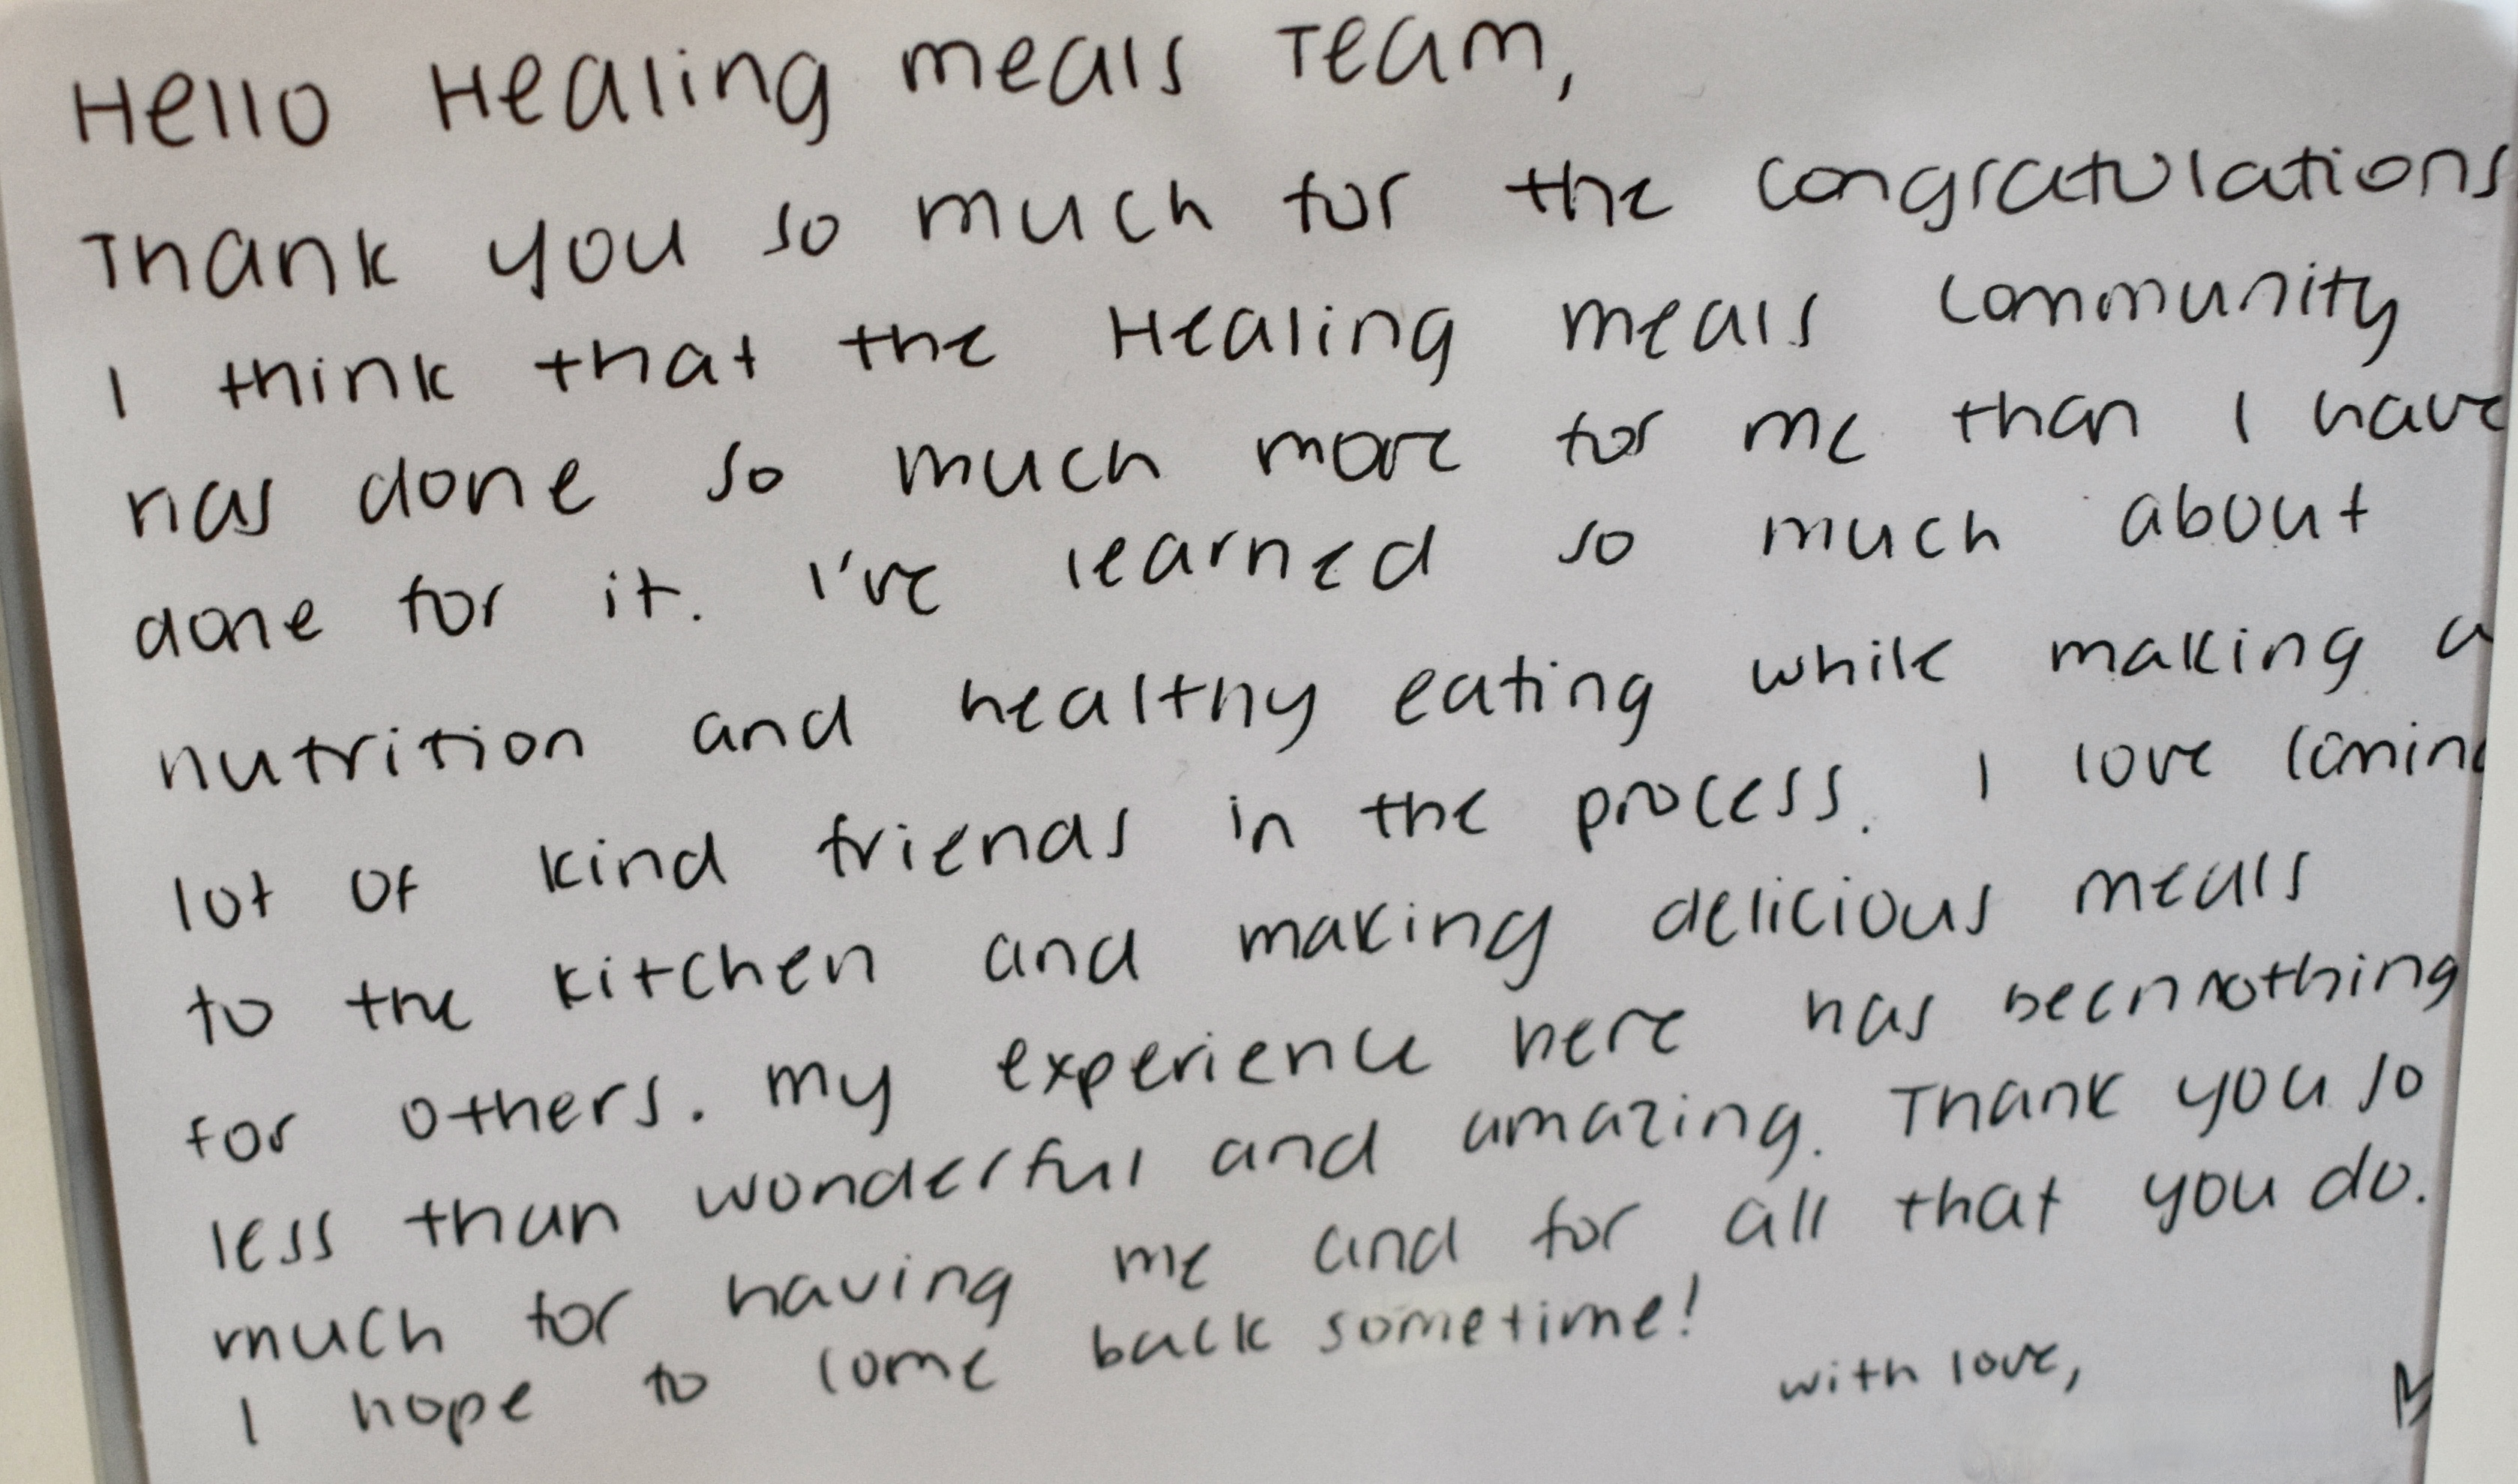 Hello Healing meals Team,
Thank you so much for the congratulations
I think that the Healing meals community
has done so much more for me than I have
done for it. I've learned so much about
nutrition and healthy eating while making a
lot of kind friends in the process. I love coming
to the kitchen and making delicious meals
for others. my experience here has been nothing
less than wonderful and amazing. Thank you so
much for having me and for all that you do.
I hope to come back sometime!
with love,